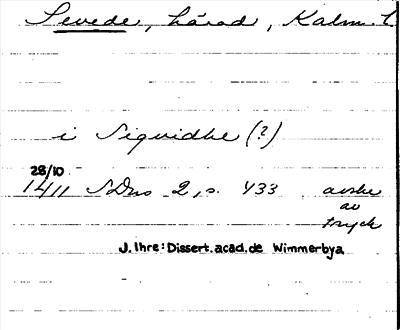 Sevede, härad, Kalm. l.
i Siguidhe (?)
28/10
1411 SDns 2, s. 433 avskr
av
tryck
J. Ihre: Dissert. acad. de Wimmerbya